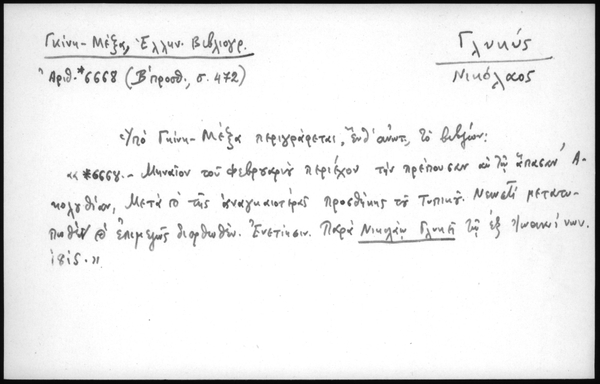 Γκίνη - Μέξα, Ἑλλην. Βιβλιογρ.
Γλυκύς
Ἀριθ. *6668 (Β' προσθ., σ. 472)
Νικόλαος
Ὑπό Γκίνη - Μέξα περιγράφεται, ἔνθ' ἀνωτ., τό βιβλίον:
«*6668.- Μηναῖον τοῦ Φεβρουαρίου περιέχον τήν πρέπουσαν αὐτῷ ἅπασαν Ἀ-
κολουθίαν, Μετά τῆς ἀναγκαιοτέρας προσθήκης τοῦ Τυπικοῦ. Νεωστί μετατυ-
πωθέν ἐπιμελῶς διορθωθέν. Ἐνετίησιν. Παρά Νικολάῳ Γλυκεῖ τῷ ἐξ Ἰωαννίνων.
»